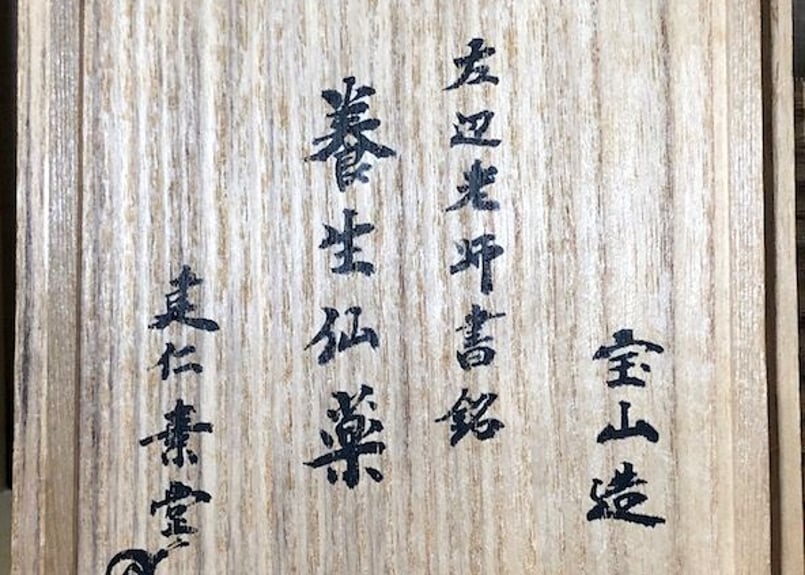 宝山造
左辺老師書銘
養生仙薬
建仁素堂